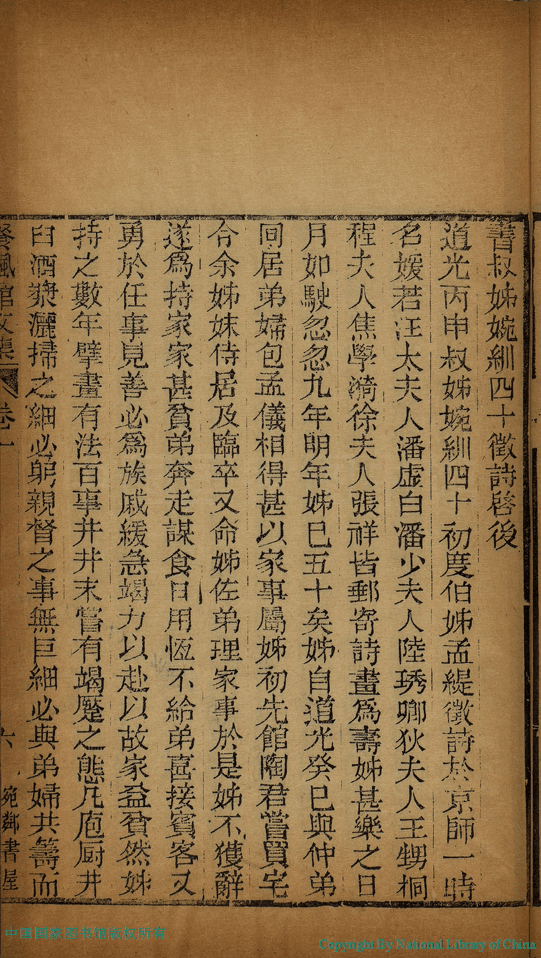 書叔姊婉紃四十徵詩啓後
道光丙申叔姊婉紃四十初度伯姊孟緹徵詩於京師一時
名媛若汪太夫人潘虛白潘少夫人陸琇卿狄夫人王甥桐
程夫人焦學漪徐夫人張祥皆郵寄詩畫爲壽姊甚樂之日
月如駛忽忽九年明年姊巳五十矣姊自道光癸巳與仲弟
同居弟婦包孟儀相得甚以家事屬姊初先館陶君嘗買宅
合余姊妹侍居及臨卒又命姊佐弟理家事於是姊不獲辭
遂爲持家家甚貧弟奔走謀食日用恆不給弟喜接賓客又
勇於任事見善必爲族戚緩急竭力以赴以故家益貧然姊
持之數年擘畫有法百事井井末嘗有竭蹙之態凡庖厨井
臼酒漿灑掃之細必躬親督之事無巨細必與弟婦共籌而
餐楓館文集 卷一 六 宛鄰書屋
中国国家图书馆版权所有
Copyright By National Library of China